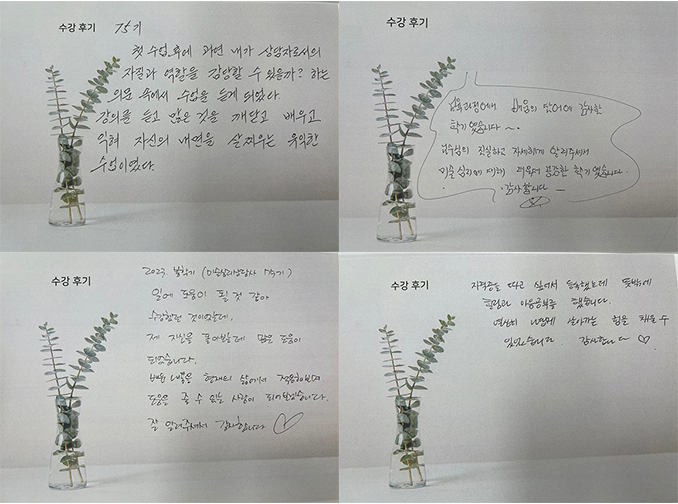 수강 후기
75기
첫 수업후에 과연 내가 상담자로서의
자질과 역할을 감당할 수 있을까? 하는
의문 속에서 수업을 듣게 되었다
강의를 듣고 많은 것을 깨닫고 배우고
익혀 자신의 내면을 살찌우는 유익한
수업이였다.
수강 후기
감사한
학기였습니다 ~.
교수님의 진실하고 자세하게 알려주셔서
미술심리에 대해 학기였습니다.
감사합니다
수강 후기
2023. 봄학기 (미술심리상담사 75기)
일에 도움이 될 것 같아
수강했던 것이었는데,
제 자신을 돌아보는데 많은 도움이
되었습니다.
배운 것을 현재의 삶에서 적용하며
도움을 줄 수 있는 사람이 되어보겠습니다.
잘 알려주셔서 감사합니다 ♡
수강 후기
자격증을 따고 싶어서 등록했는데 뜻밖에
마음공부를 했습니다.
열심히 살아가는 힘을 키울 수
있었습니다. 감사합니다 ♡